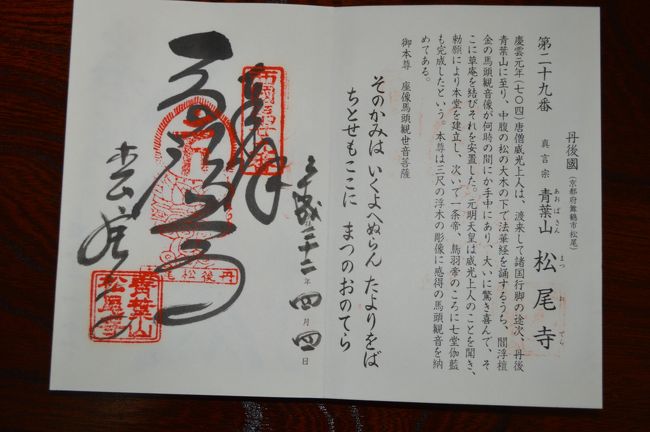 第二十九番
丹後國
(京都府舞鶴市松尾)
真言宗 青葉山 松尾寺
あおばさん
まつ お でら
慶雲元年(七〇四)唐僧威光上人は、渡来して諸国行脚の途次、丹後
青葉山に至り、中腹の松の大木の下で法華経を誦するうち、閻浮檀
金の馬頭観音像が何時の間にか手中にあり、大いに驚き喜んで、そ
こに草庵を結びそれを安置した。元明天皇は威光上人のことを聞き、
勅願により本堂を建立し、次いで一条帝、鳥羽帝のころに七堂伽藍
も完成したという。本尊は三尺の浮木の彫像に感得の馬頭観音を納
めてある。
御本尊 座像馬頭観世音菩薩
そのかみは いくよへぬらん たよりをば
ちとせもここに まつのおのてら
平成二十二年四月四日
奉拝
松尾寺
丹後松尾
青葉山
松尾寺